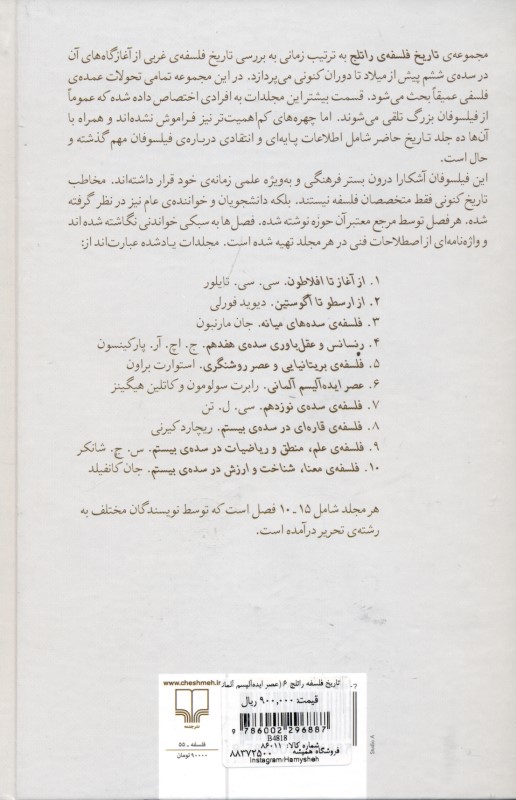 مجموعه‌ی تاریخ فلسفه‌ی راتلج به ترتیب زمانی به بررسی تاریخ فلسفه‌ی غربی از آغازگاه‌های آن
در سده‌ی ششم پیش از میلاد تا دوران کنونی می‌پردازد. در این مجموعه تمامی تحولات عمده‌ی
فلسفی عمیقاً بحث می‌شود. قسمت بیشتر این مجلدات به افرادی اختصاص داده شده که عموماً
از فیلسوفان بزرگ تلقی می‌شوند. اما چهره‌های کم‌اهمیت‌تر نیز فراموش نشده‌اند و همراه با
آن‌ها ده جلد تاریخ حاضر شامل اطلاعات پایه‌ای و انتقادی درباره‌ی فیلسوفان مهم گذشته و
حال است.
این فیلسوفان آشکارا درون بستر فرهنگی و به‌ویژه علمی زمانه‌ی خود قرار داشته‌اند. مخاطب
تاریخ کنونی فقط متخصصان فلسفه نیستند. بلکه دانشجویان و خواننده‌ی عام نیز در نظر گرفته
شده. هر فصل توسط مرجع معتبر آن حوزه نوشته شده. فصل‌ها به سبکی خواندنی نگاشته شده اند
و واژه‌نامه‌ای از اصطلاحات فنی در هر مجلد تهیه شده است. مجلدات یادشده عبارت‌اند از:
۱. از آغاز تا افلاطون. سی. سی. تایلور
۲. از ارسطو تا آگوستین. دیوید فورلی
۳. فلسفه‌ی سده‌های میانه. جان مارنبون
۴. رنسانس و عقل‌باوری سده‌ی هفدهم. ج. اچ. آر. پارکینسون
۵. فلسفه‌ی بریتانیایی و عصر روشنگری. استوارت براون
۶. عصر ایده‌آلیسم آلمانی. رابرت سولومون و کاتلین هیگینز
۷. فلسفه‌ی سده‌ی نوزدهم. سی. ل. تن
۸. فلسفه‌ی قاره‌ای در سده‌ی بیستم. ریچارد کیرنی
۹. فلسفه‌ی علم، منطق و ریاضیات در سده‌ی بیستم. س. ج. شانکر
۱۰. فلسفه‌ی معنا، شناخت و ارزش در سده‌ی بیستم. جان کانفیلد
هر مجلد شامل ۱۵ ـ ۱۰ فصل است که توسط نویسندگان مختلف به
رشته‌ی تحریر درآمده است.
www.cheshmeh.ir
تاریخ فلسفه راتلج ۶ (عصر ایده‌آلیسم آلمانـ
قیمت: ۹۰۰,۰۰۰ ریال
9 786002 296887
B4818
شماره کالا: ۸۶۰۱۱
فروشگاه همیشه ۸۸۳۷۲۵۰۰
Instagram:Hamysheh
فلسفه ـ ۵۵
۹۰۰۰۰ تومان
Studio A